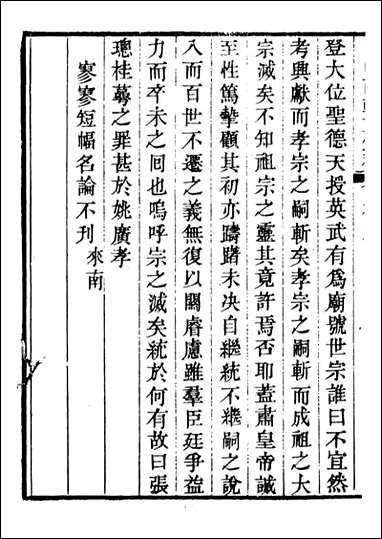 登大位聖德天授英武有爲廟號世宗誰曰不宜然
考興獻而孝宗之嗣斬矣孝宗之嗣斬而成祖之大
宗滅矣不知祖宗之靈其竟許焉否耶蓋肅皇帝誠
至性篤摯顧其初亦躊躇未决自繼統不繼嗣之說
入而百世不遷之義無復以關睿慮雖羣臣廷爭益
力而卒未之回也嗚呼宗之滅矣統於何有故曰張
璁桂萼之罪甚於姚廣孝
寥寥短幅名論不刋
來南